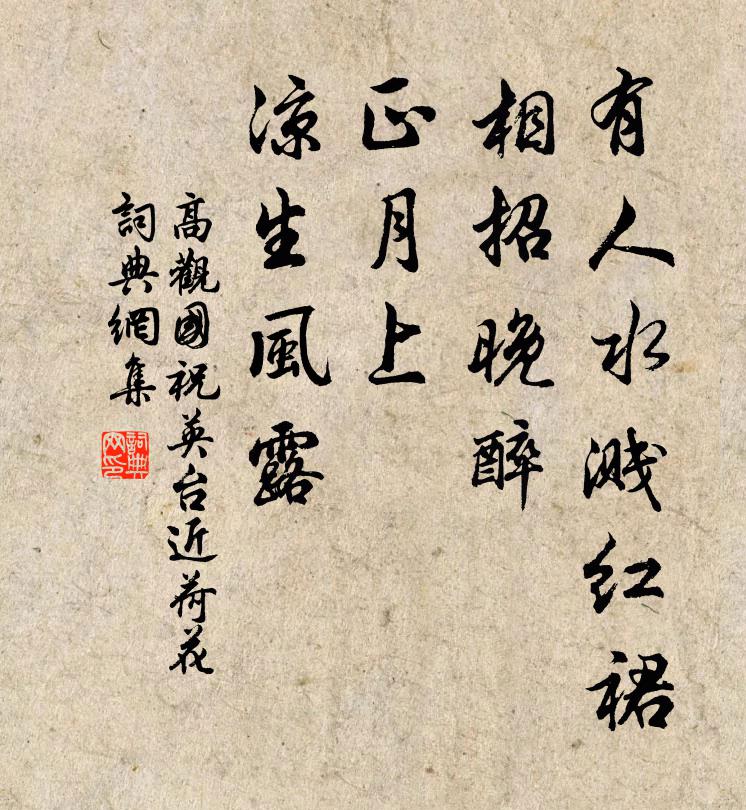 有人水溅红裙
相招晚醉
正月上
凉生風露
高觀國祝英台近荷花
詞典網集
詞典
网印